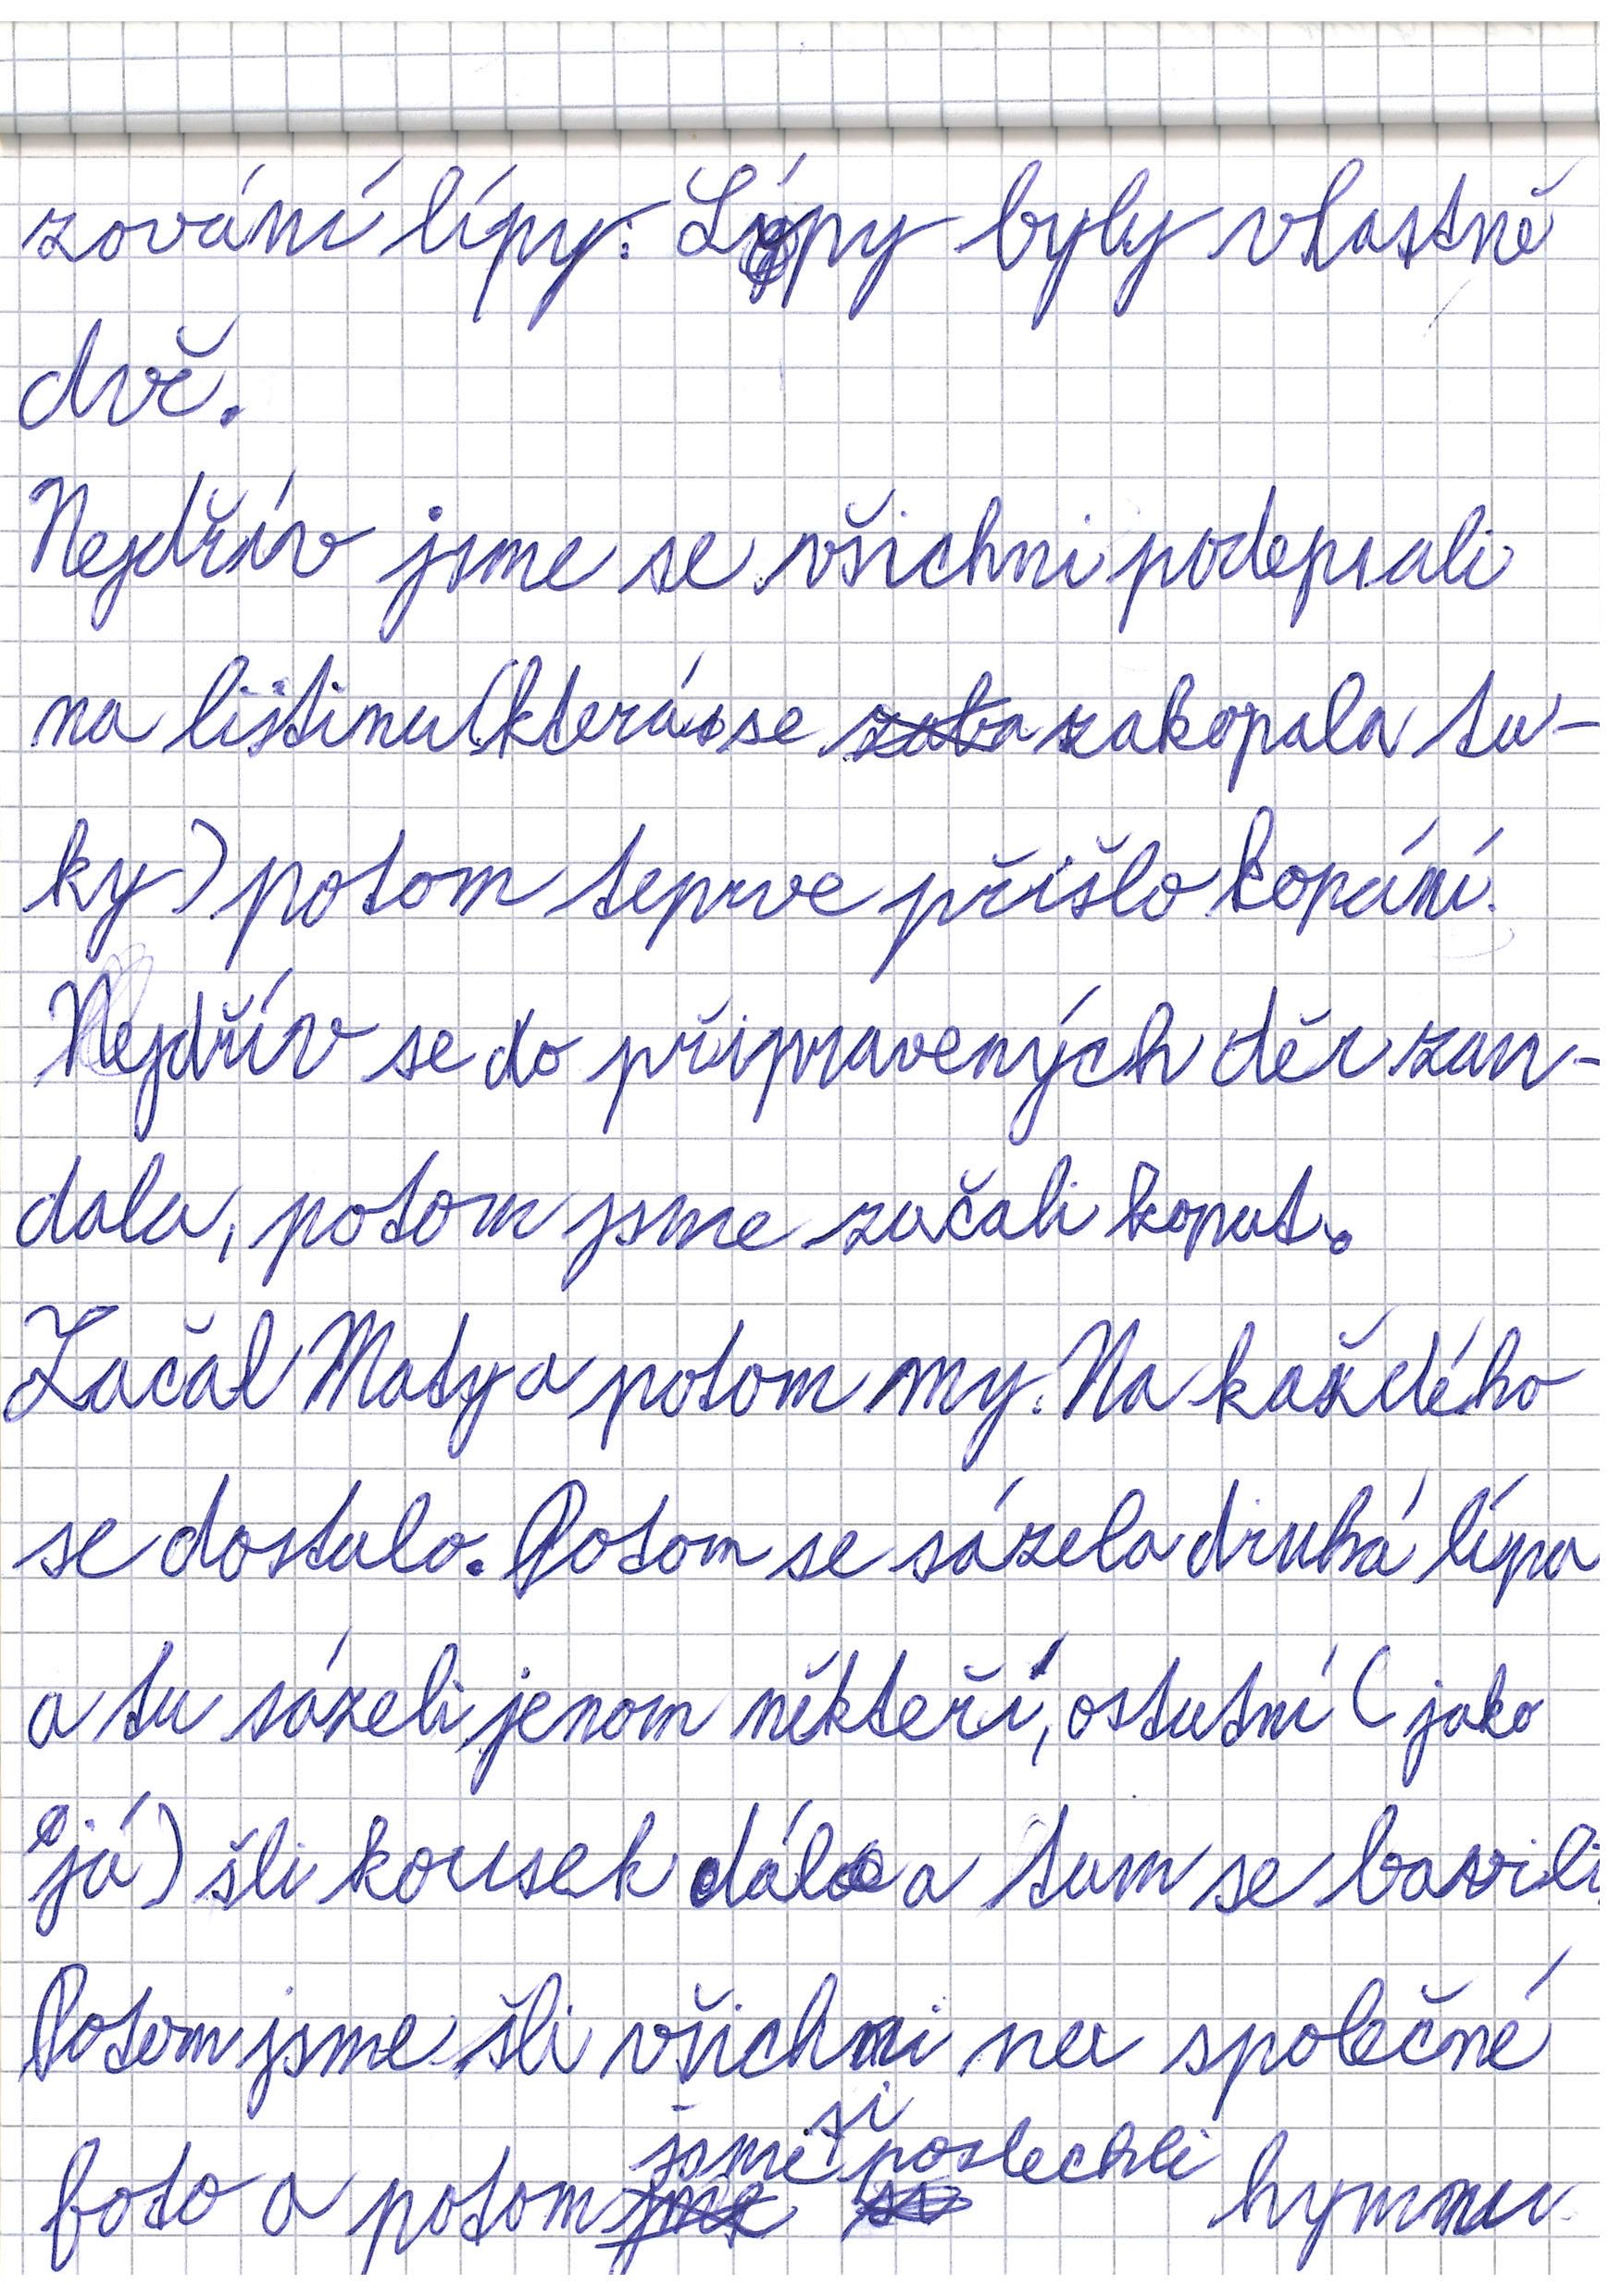 zování lípy: Lípy byly vlastně
dvě.
Nejdřív jsme se všichni podepsali
na lištinu (která se zakopala tu-
ky) potom teprve přišlo kopání.
Nejdřív se do připravených děr zan-
dala, potom jsme začali kopat.
Začal Maty a potom my. Na každého
se dostalo. Potom se sázela druhá lípa
a tu sázeli jenom někteří, ostatní (jako
já) šli kousek dále a tam se bavili.
Potom jsme šli všichni na společné
foto a potom jsme si poslechli hymnu.